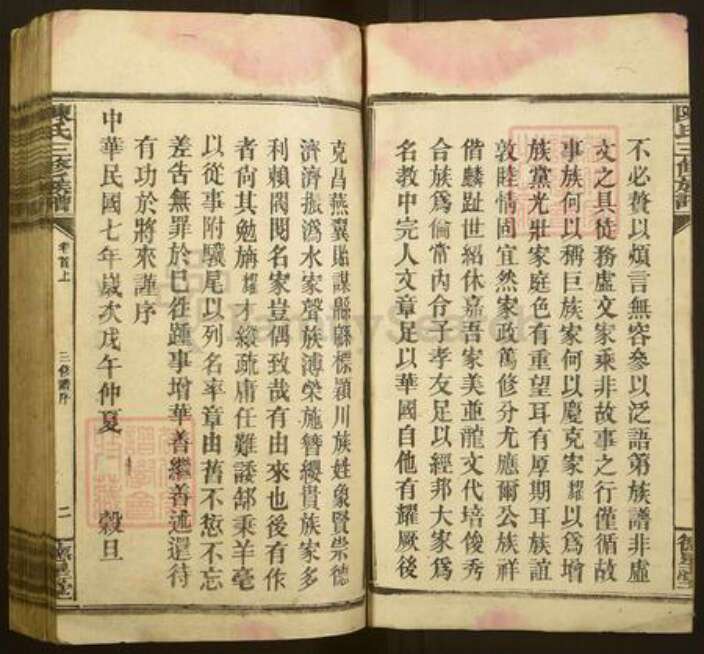 陳氏三修族譜
不必贅以煩言無容參以泛語第族譜非虛
文之具徒務虛文家乘非故事之行僅循故
事族何以稱巨族家何以慶克家耀以為增
族黨光壯家庭色有重望耳有厚期耳族誼
敦睦情固宜然家政萬修分尤應爾公族祥
偕麟趾世紹休嘉吾家美並龍文代培俊秀
合族為倫常內令子孝友足以經邦大家為
名教中完人文章足以華國自他有耀厥後
克昌燕翼貽謀縣縣標穎川族姓象賢崇德
濟濟振溈水家聲族溥榮施簪纓貴族家多
利賴閥閱名家豈偶致哉有由來也後有作
者尚其勉旃耀才緣疏庸任難諉鄀乘羊毫
以從事附驥尾以列名率章由舊不愆不忘
差告無罪於已徃踵事增華善繼善述還待
有功於將來謹序
中華民國七年歲次戊午仲夏 穀旦
陳氏三修族譜
卷首上
三修譜序
二